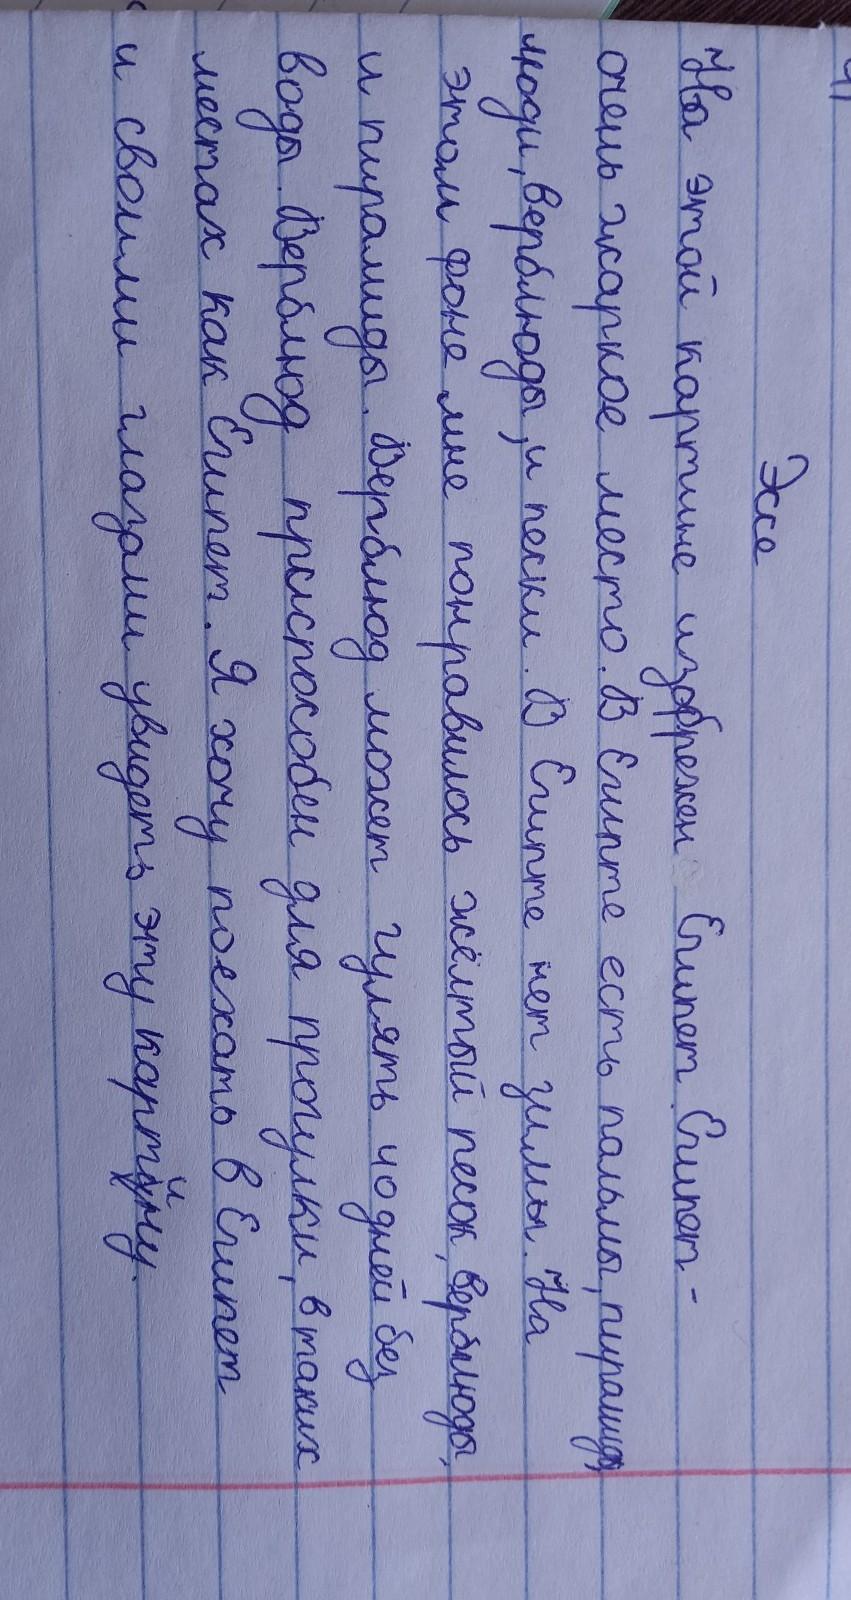 Эссе
На этой картине изобрежен Египет. Египет-
очень жаркое место. В Египте есть пальмы, пирамиды,
люди, верблюды, и пески. В Египте нет зимы. На
этом фоне мне понравилось жёлтый песок, верблюды,
и пирамиды. Верблюд может гулять 40 дней без
воды. Верблюд приспособен для прогулки, в таких
местах как Египет. Я хочу поехать в Египет
и своими глазами увидеть эту картину.